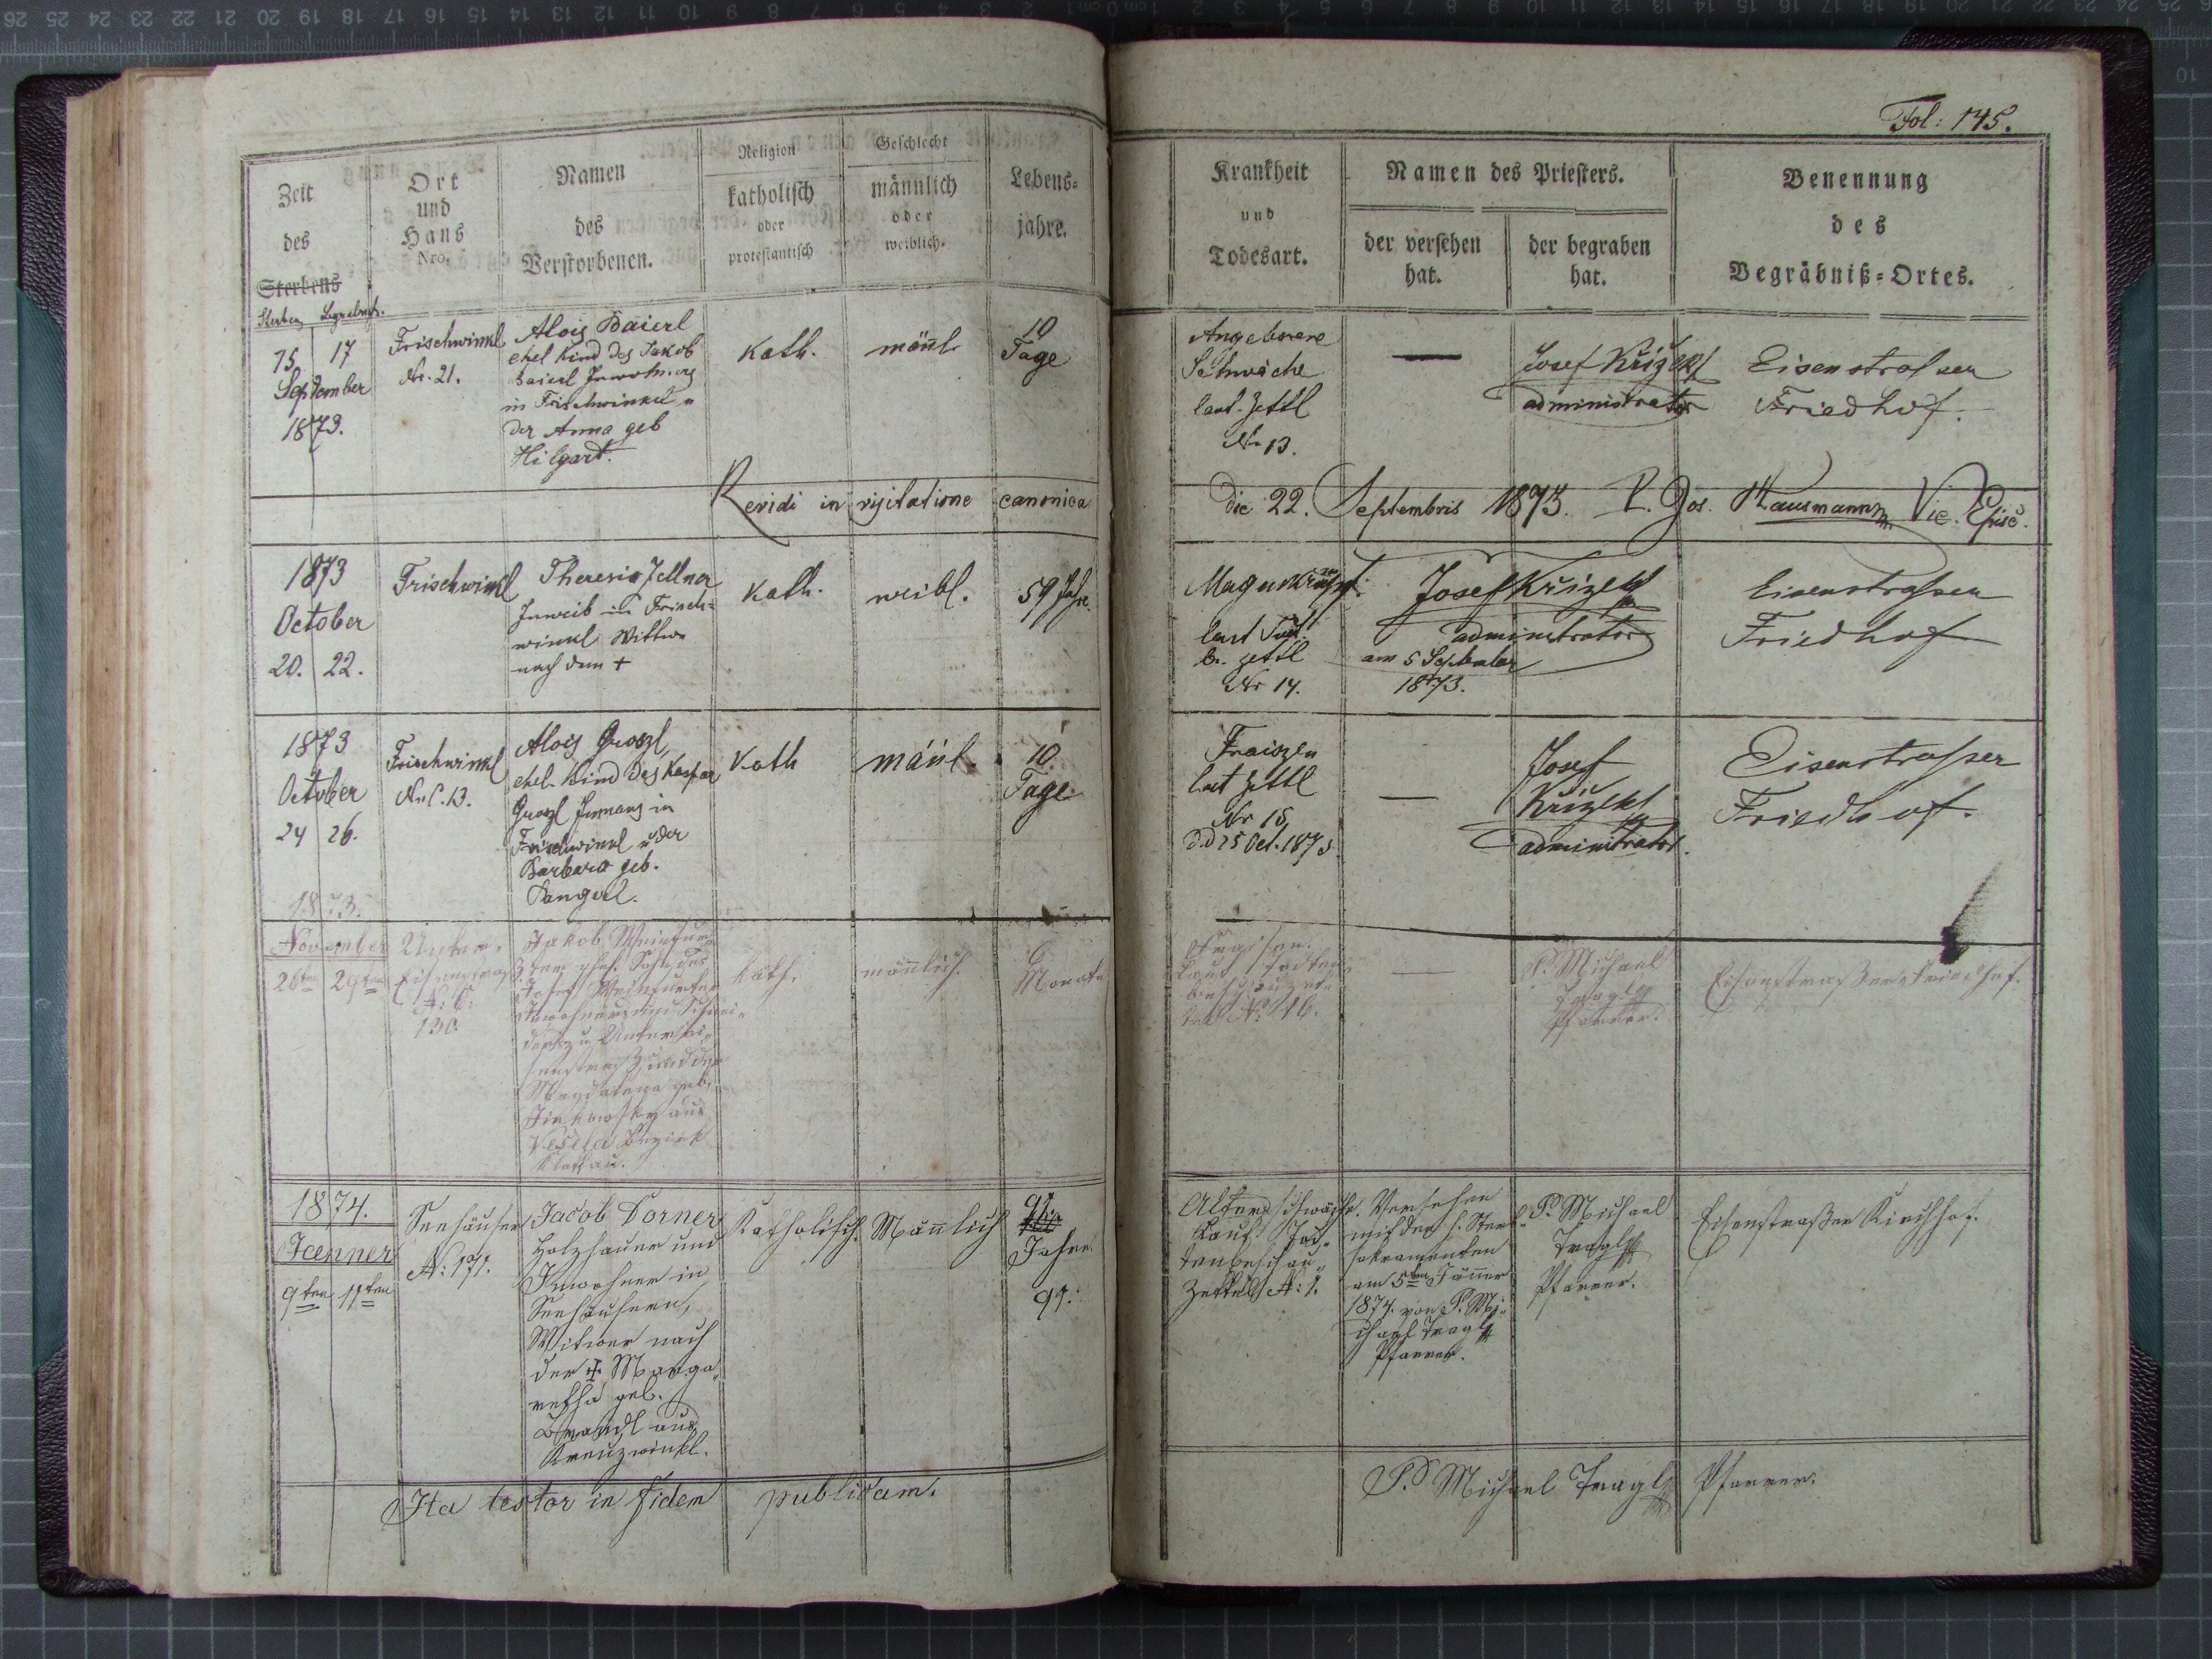 Fol: 145.
Zeit des Sterbens
Sterbens Begräbniß.
Ort und Haus Nro.
Namen des Verstorbenen.
Religion
katholisch oder protestantisch
Geschlecht
männlich oder weiblich.
Lebensjahre.
Krankheit und Todesart.
Namen des Priesters.
der versehen hat.
der begraben hat.
Benennung des Begräbniß=Ortes.
15 17
September
1873.
Frischwinkl
Nr. 21.
Alois Baierl
ehel Kind des Jakob
Baierl Inwohners
in Frischwinkel u
der Anna geb
Hilgart.
Kath.
mänl
10
Tage
Angeborene
Schwäche
laut. Zettl
Nr 13.
—
Josef Křižekl
administrator
Eisenstrasser
Friedhof.
Revidi in visitatione canonica
die 22. Septembris 1873. P. Jos. Hausmann Vic. Episc.
1873
October
20. 22.
Frischwinkl
Theresia Zellner
Inweib in Frisch=
winkl Wittwe
nach dem +
Kath.
weibl.
59 Jahre
Magenkrampf
laut
Zettl
Nr 14.
Josef Křižekl
administrator
am 5 September
1873.
Eisenstrasser
Friedhof
1873
October
24 26.
Frischwinkl
NrC. 13.
Alois Groszl
ehel. Kind des Kaspar
Groszl Inmans in
Frischwinkl u der
Barbara geb.
Pangerl.
Kath
mänl.
10.
Tage
Fraiszen
laut Zettl
Nr 15
dd 25 Oct. 1873
—
Josef
Křižekl
administrator.
Eisenstrasser
Friedhof.
1873.
November
26ten 29ten
Unter-
Eisenstraß
N: C:
130.
Jakob Weinfur-
ter ehel. Sohn des
Josef Weinfurter
Inwohners und Schnei-
ders zu Unterei-
senstraß, und der
Magdalena geb.
Jinkowsky aus
Vesela Bezirk
Klattau.
kath.
männlich.
6
Monate
Fraisen.
Laut Todten-
beschauzet-
tel N: 16.
—
P. Michael
Tragl
Pfarrer.
Eisenstraßer Friedhof.
1874.
Jaenner
9ten 11ten
Seehäuser
N: 171.
Jacob Dorner
Holzhauer und
Inwohner in
Seehäusern,
Witwer nach
der ✠ Marga-
retha geb.
Brandl aus
Kreuzwinkl.
Katholisch.
Männlich
Jahre
91.
Altersschwäche.
Laut Tod-
tenbeschau-
Zettel N: 1.
Versehen
mit den h. Sterb-
sakramenten
am 5ten Jänner
1874. von P. Mi-
chael Tragl
Pfarrer.
P. Michael
Tragl
Pfarrer.
Eisenstraßer Kirchhof.
Ita testor in fidem publicam.
P. Michael Tragl Pfarrer.